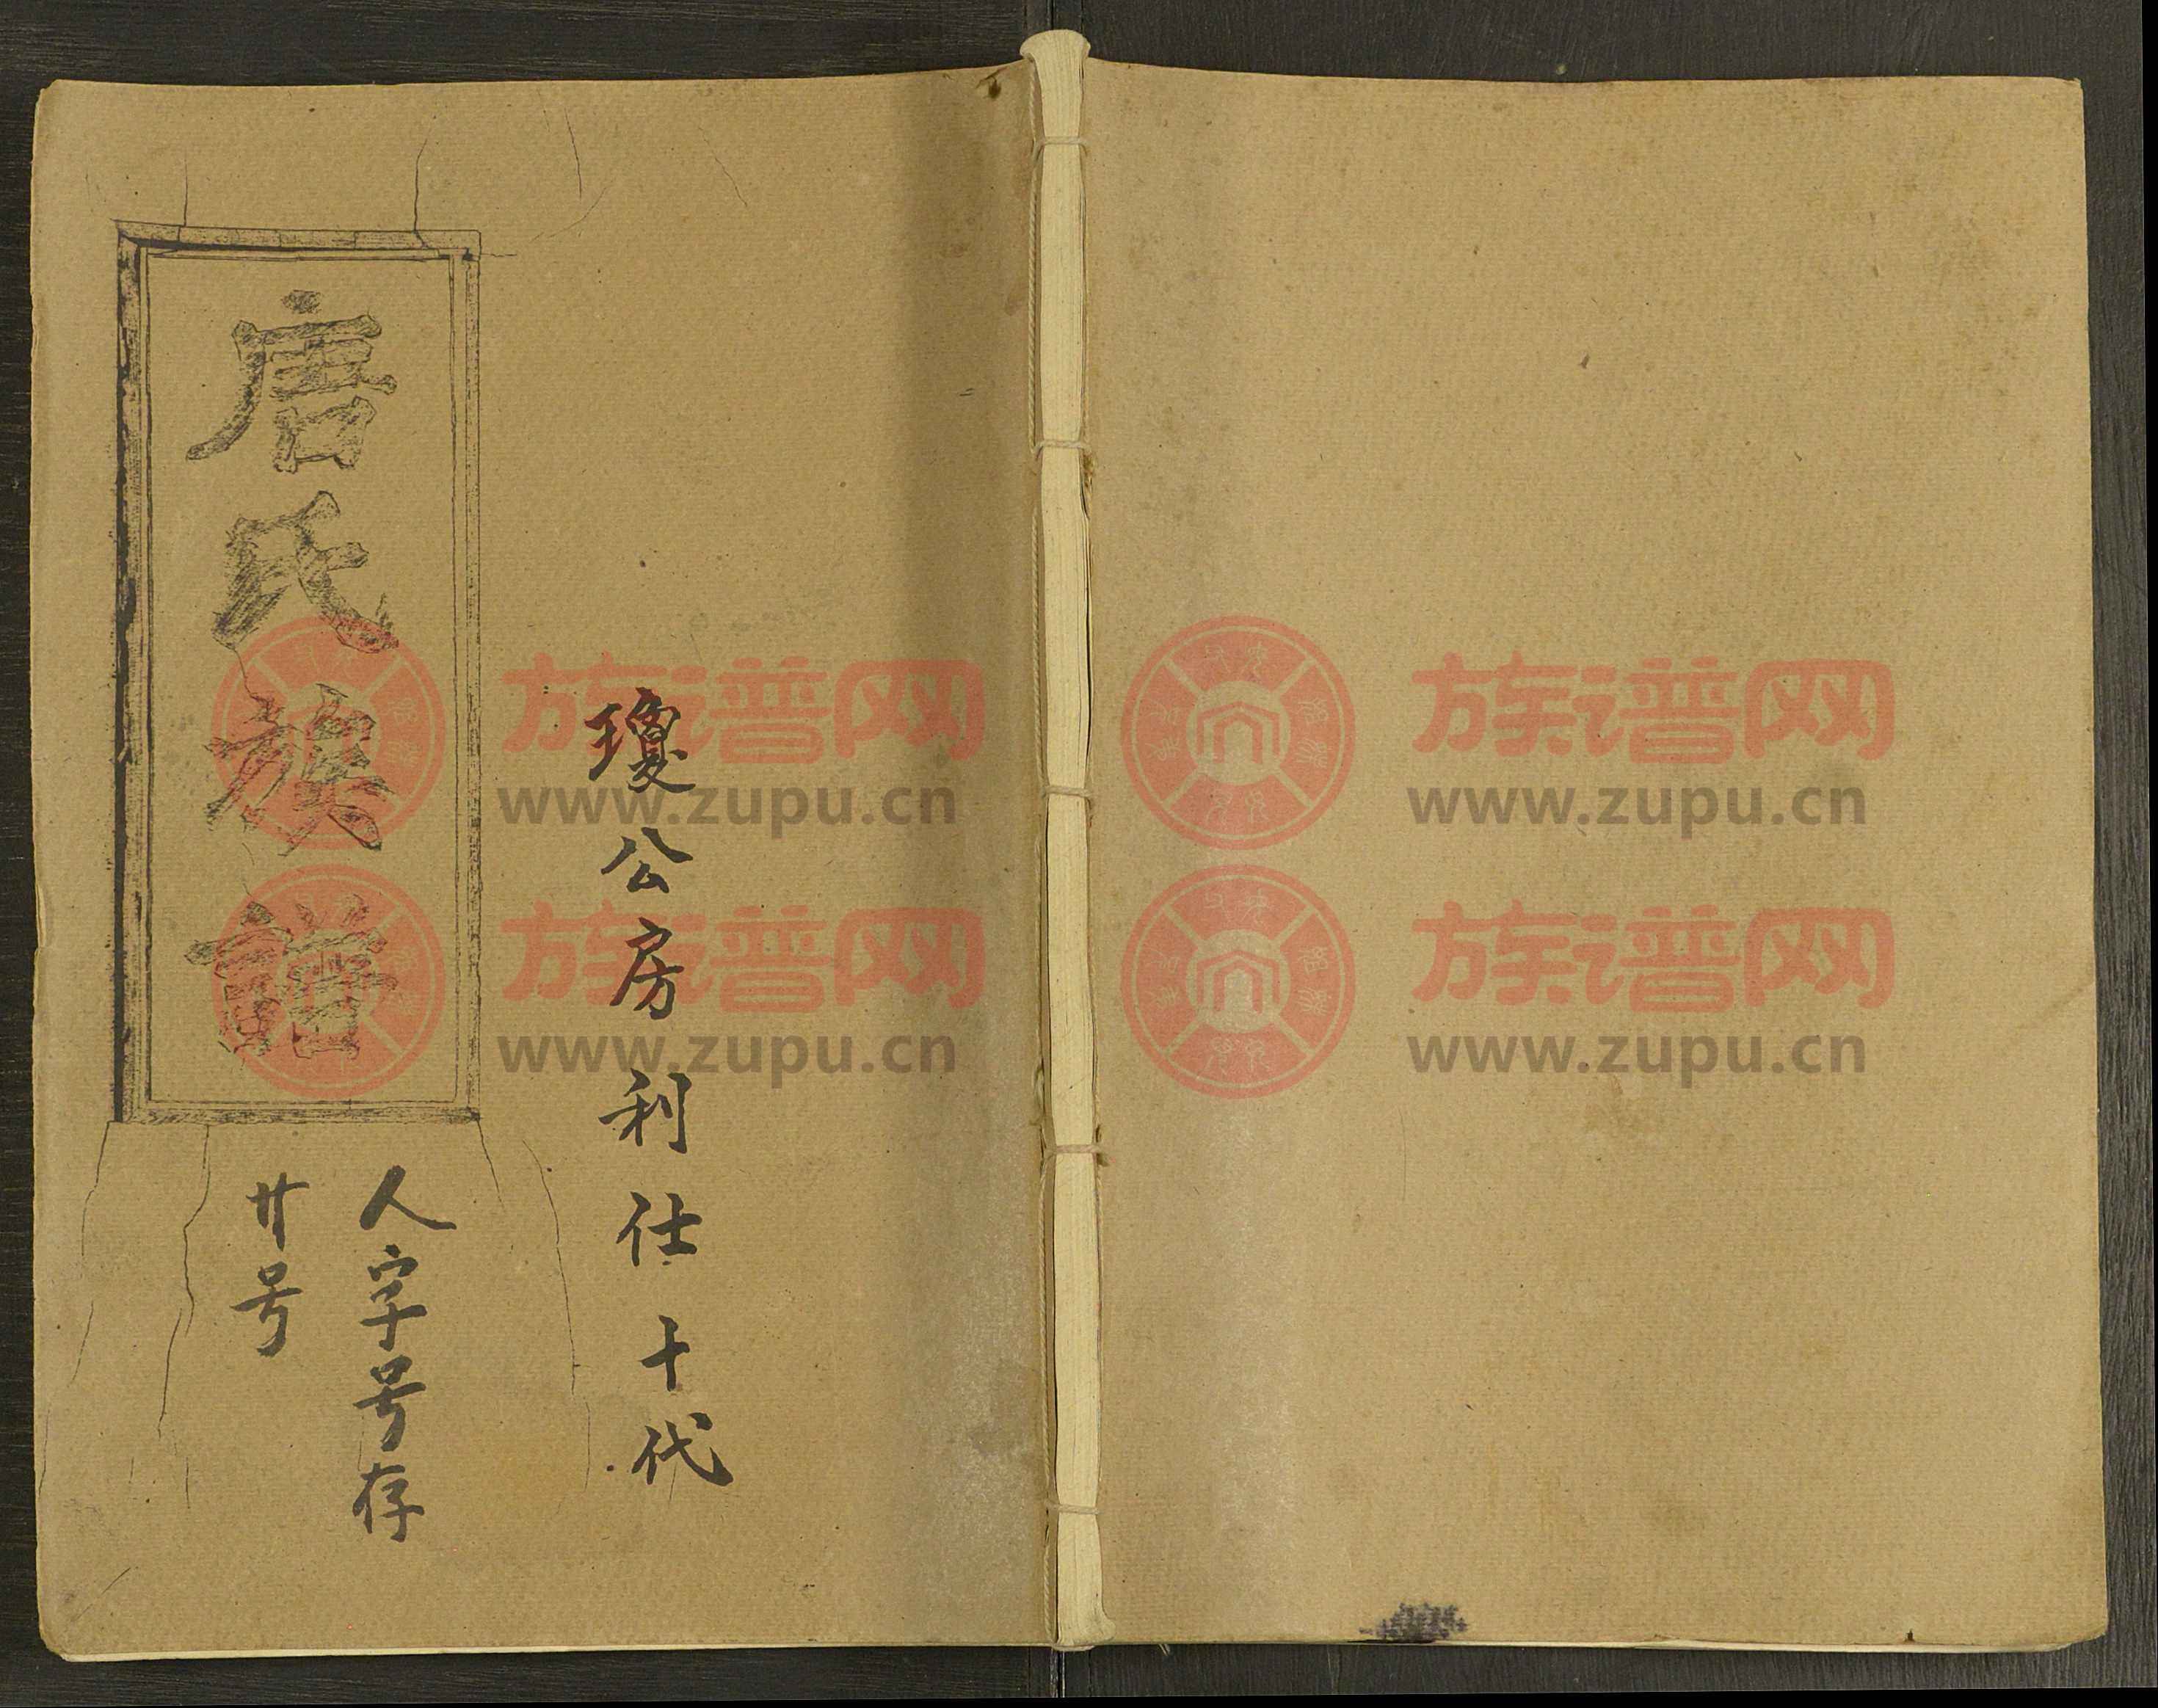 瓊公房利仕十代
唐氏族譜
人字号存
廿号
族谱网
www.zupu.cn
族谱网
www.zupu.cn
族谱网
www.zupu.cn
族谱网
www.zupu.cn